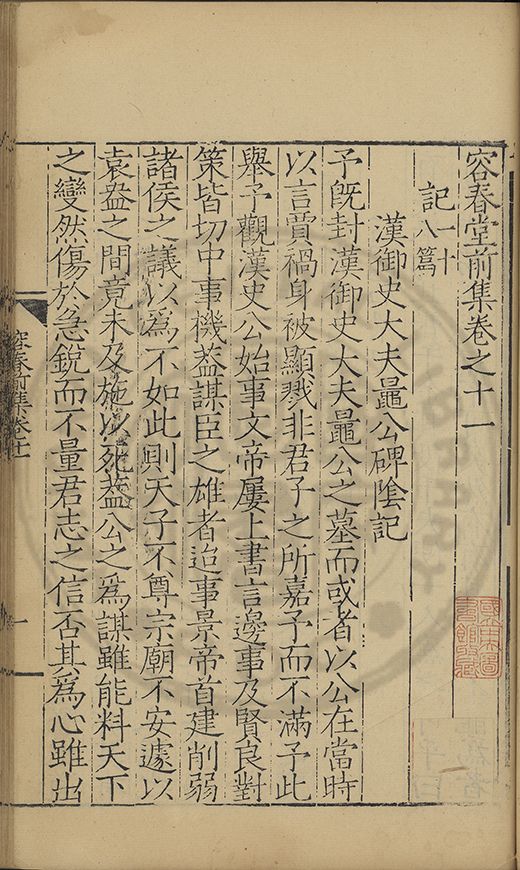 容春堂前集卷之十一
記一十八篇
漢御史大夫鼂公碑陰記
予既封漢御史大夫鼂公之墓而或者以公在當時
以言賈禍身被顯戮非君子之所嘉予而不滿予此
舉予觀漢史公始事文帝屢上書言邊事及賢良對
策皆切中事機蓋謀臣之雄者迨事景帝首建削弱
諸侯之議以為不如此則天子不尊宗廟不安遽以
袁盎之間竟未及施以死蓋公之為謀雖能料天下
之變然傷於急銳而不量君志之信否其為心雖出
容春前集卷十一
一
國立中央圖書館收藏